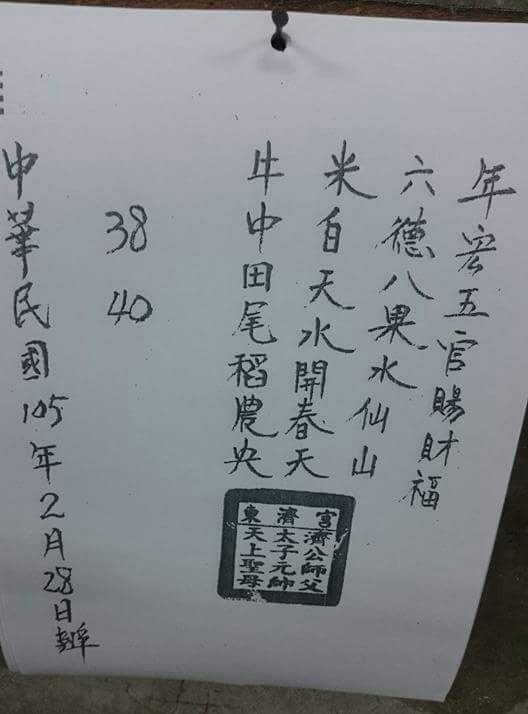 年宏五官賜財福
六德八果水仙山
米自天水開春天
牛中田尾稻農央
東濟宮
濟公師父
太子元帥
天上聖母
38
40
中華民國105年2月28日